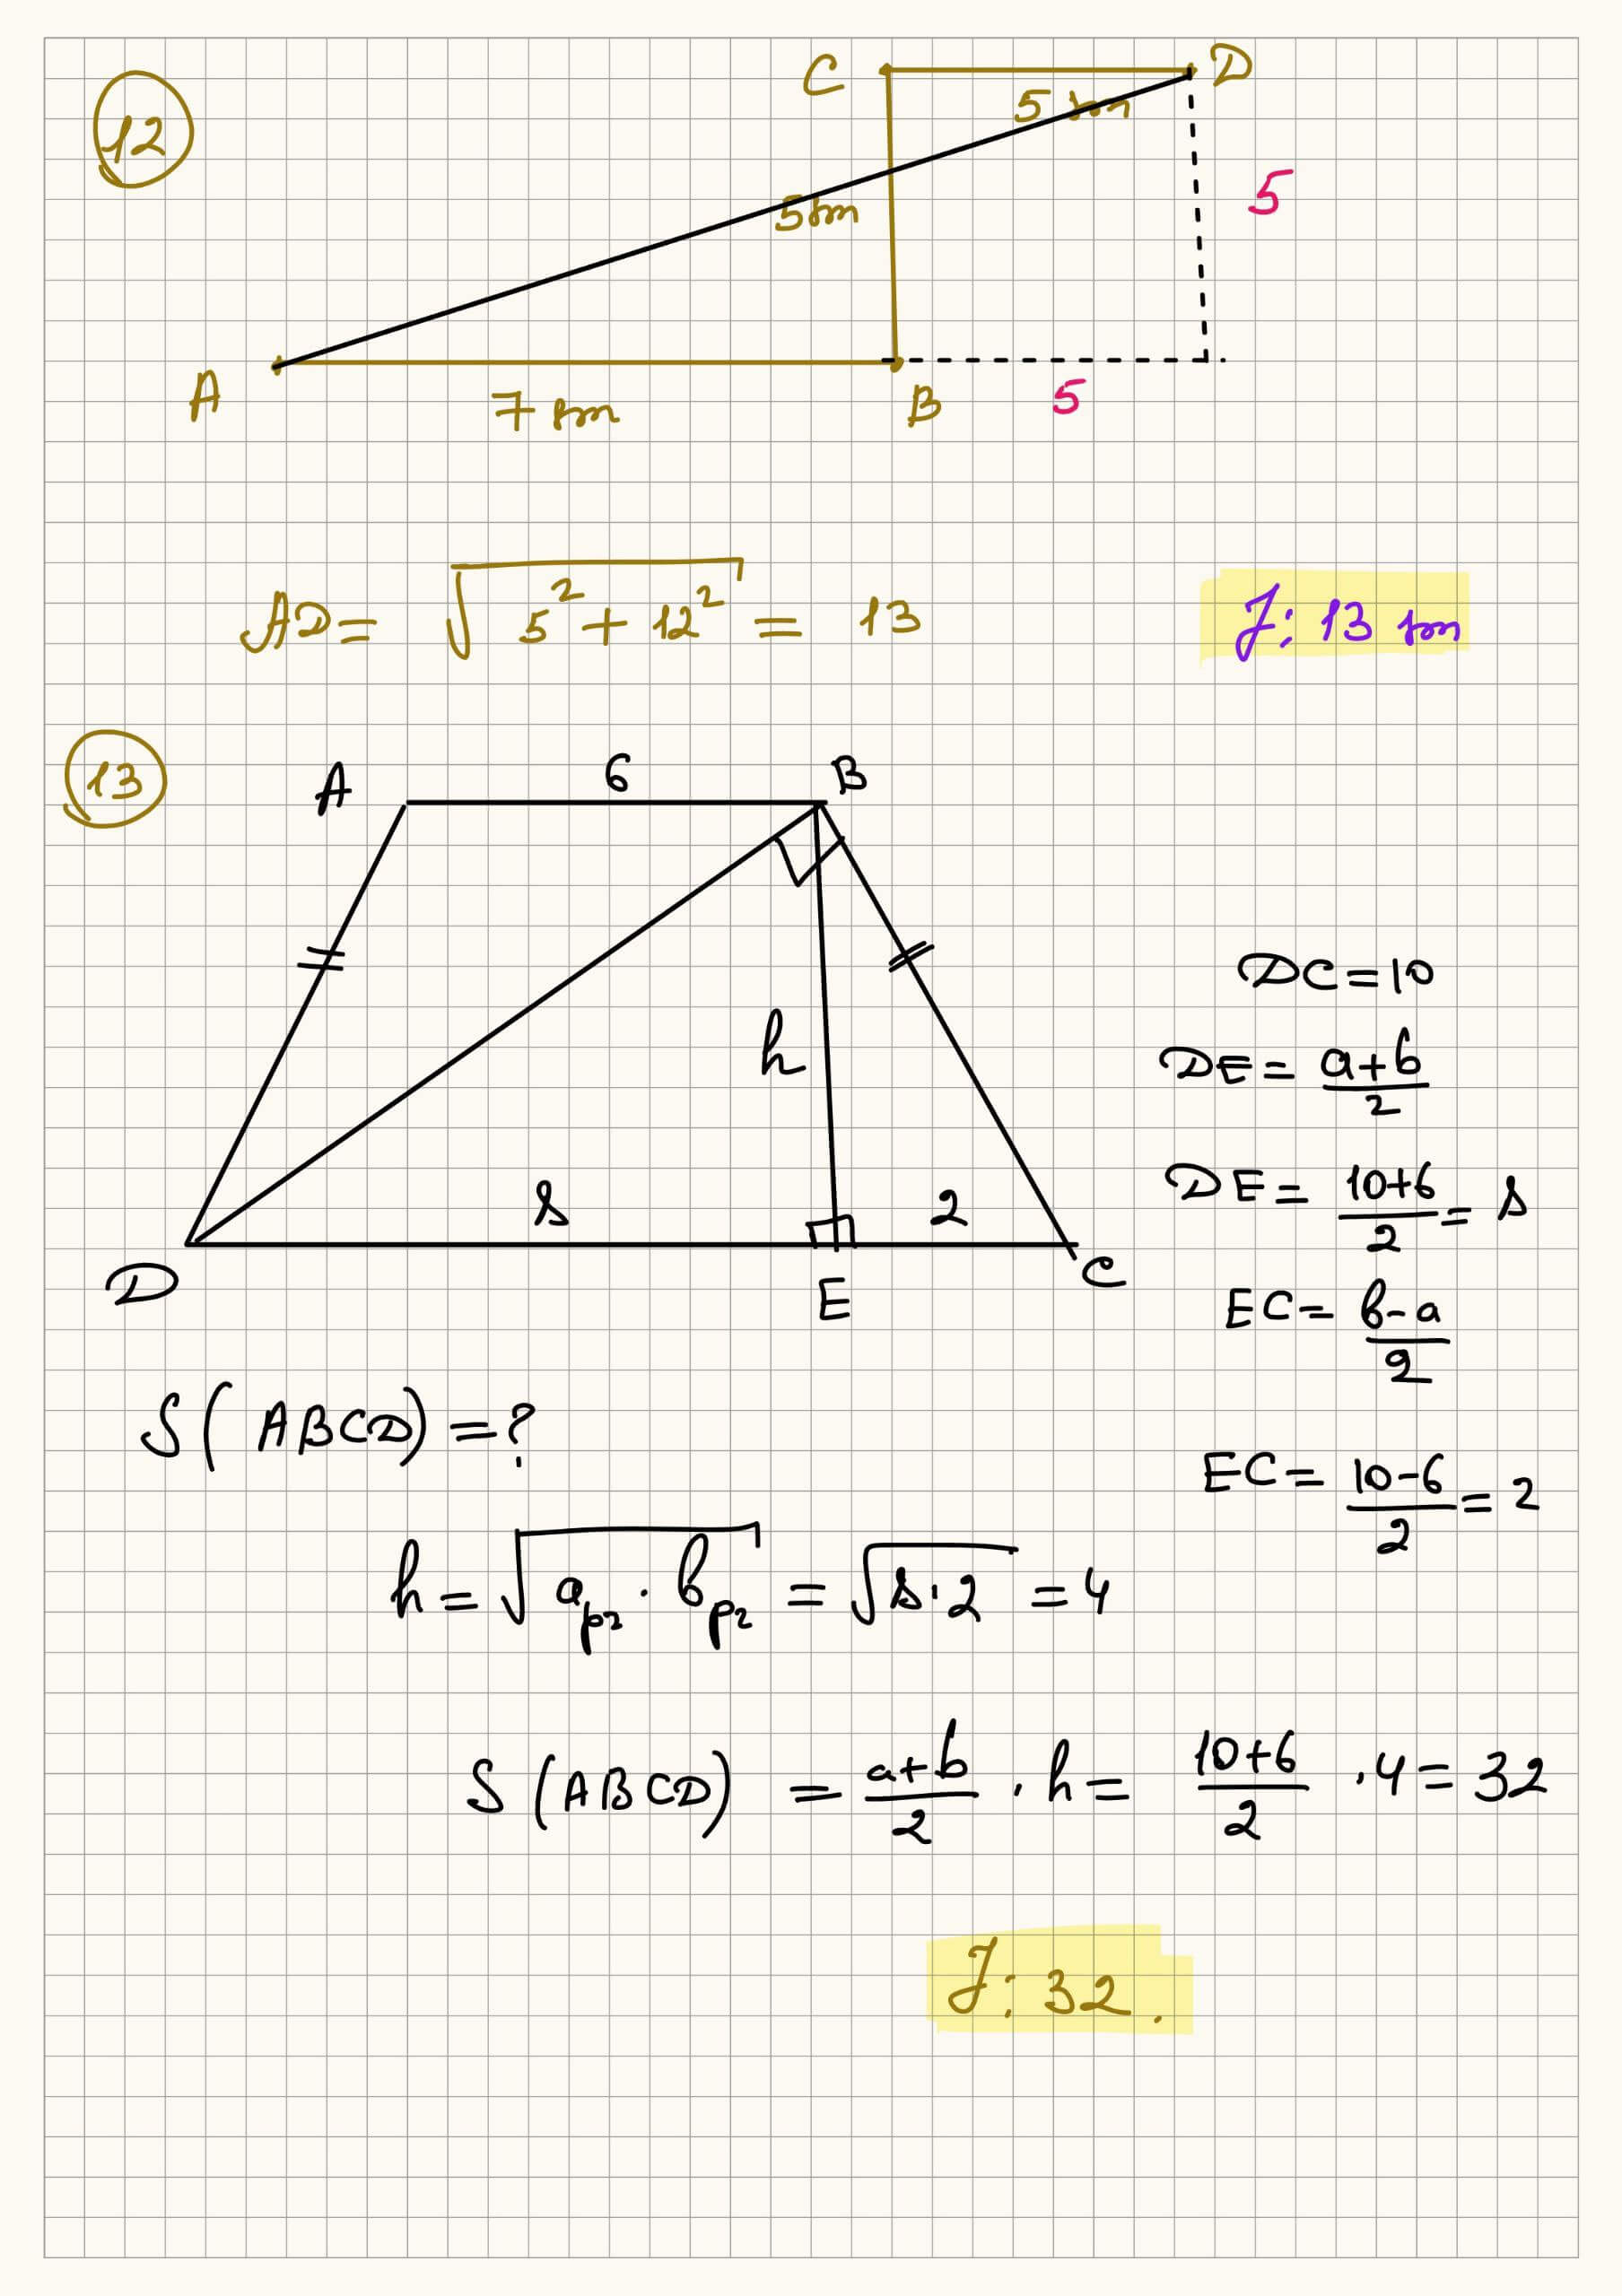 12
C D
5 km
5 km
5
A 7 km B 5
AD = √(5² + 12²) = 13 J: 13 km
13
A 6 B
h
DC = 10
DE = (a+b)/2
8 2
DE = (10+6)/2 = 8
D E C
EC = (b-a)/2
S(ABCD) = ?
EC = (10-6)/2 = 2
h = √(a_pr · b_pr) = √(8·2) = 4
S(ABCD) = (a+b)/2 · h = (10+6)/2 · 4 = 32
J: 32.